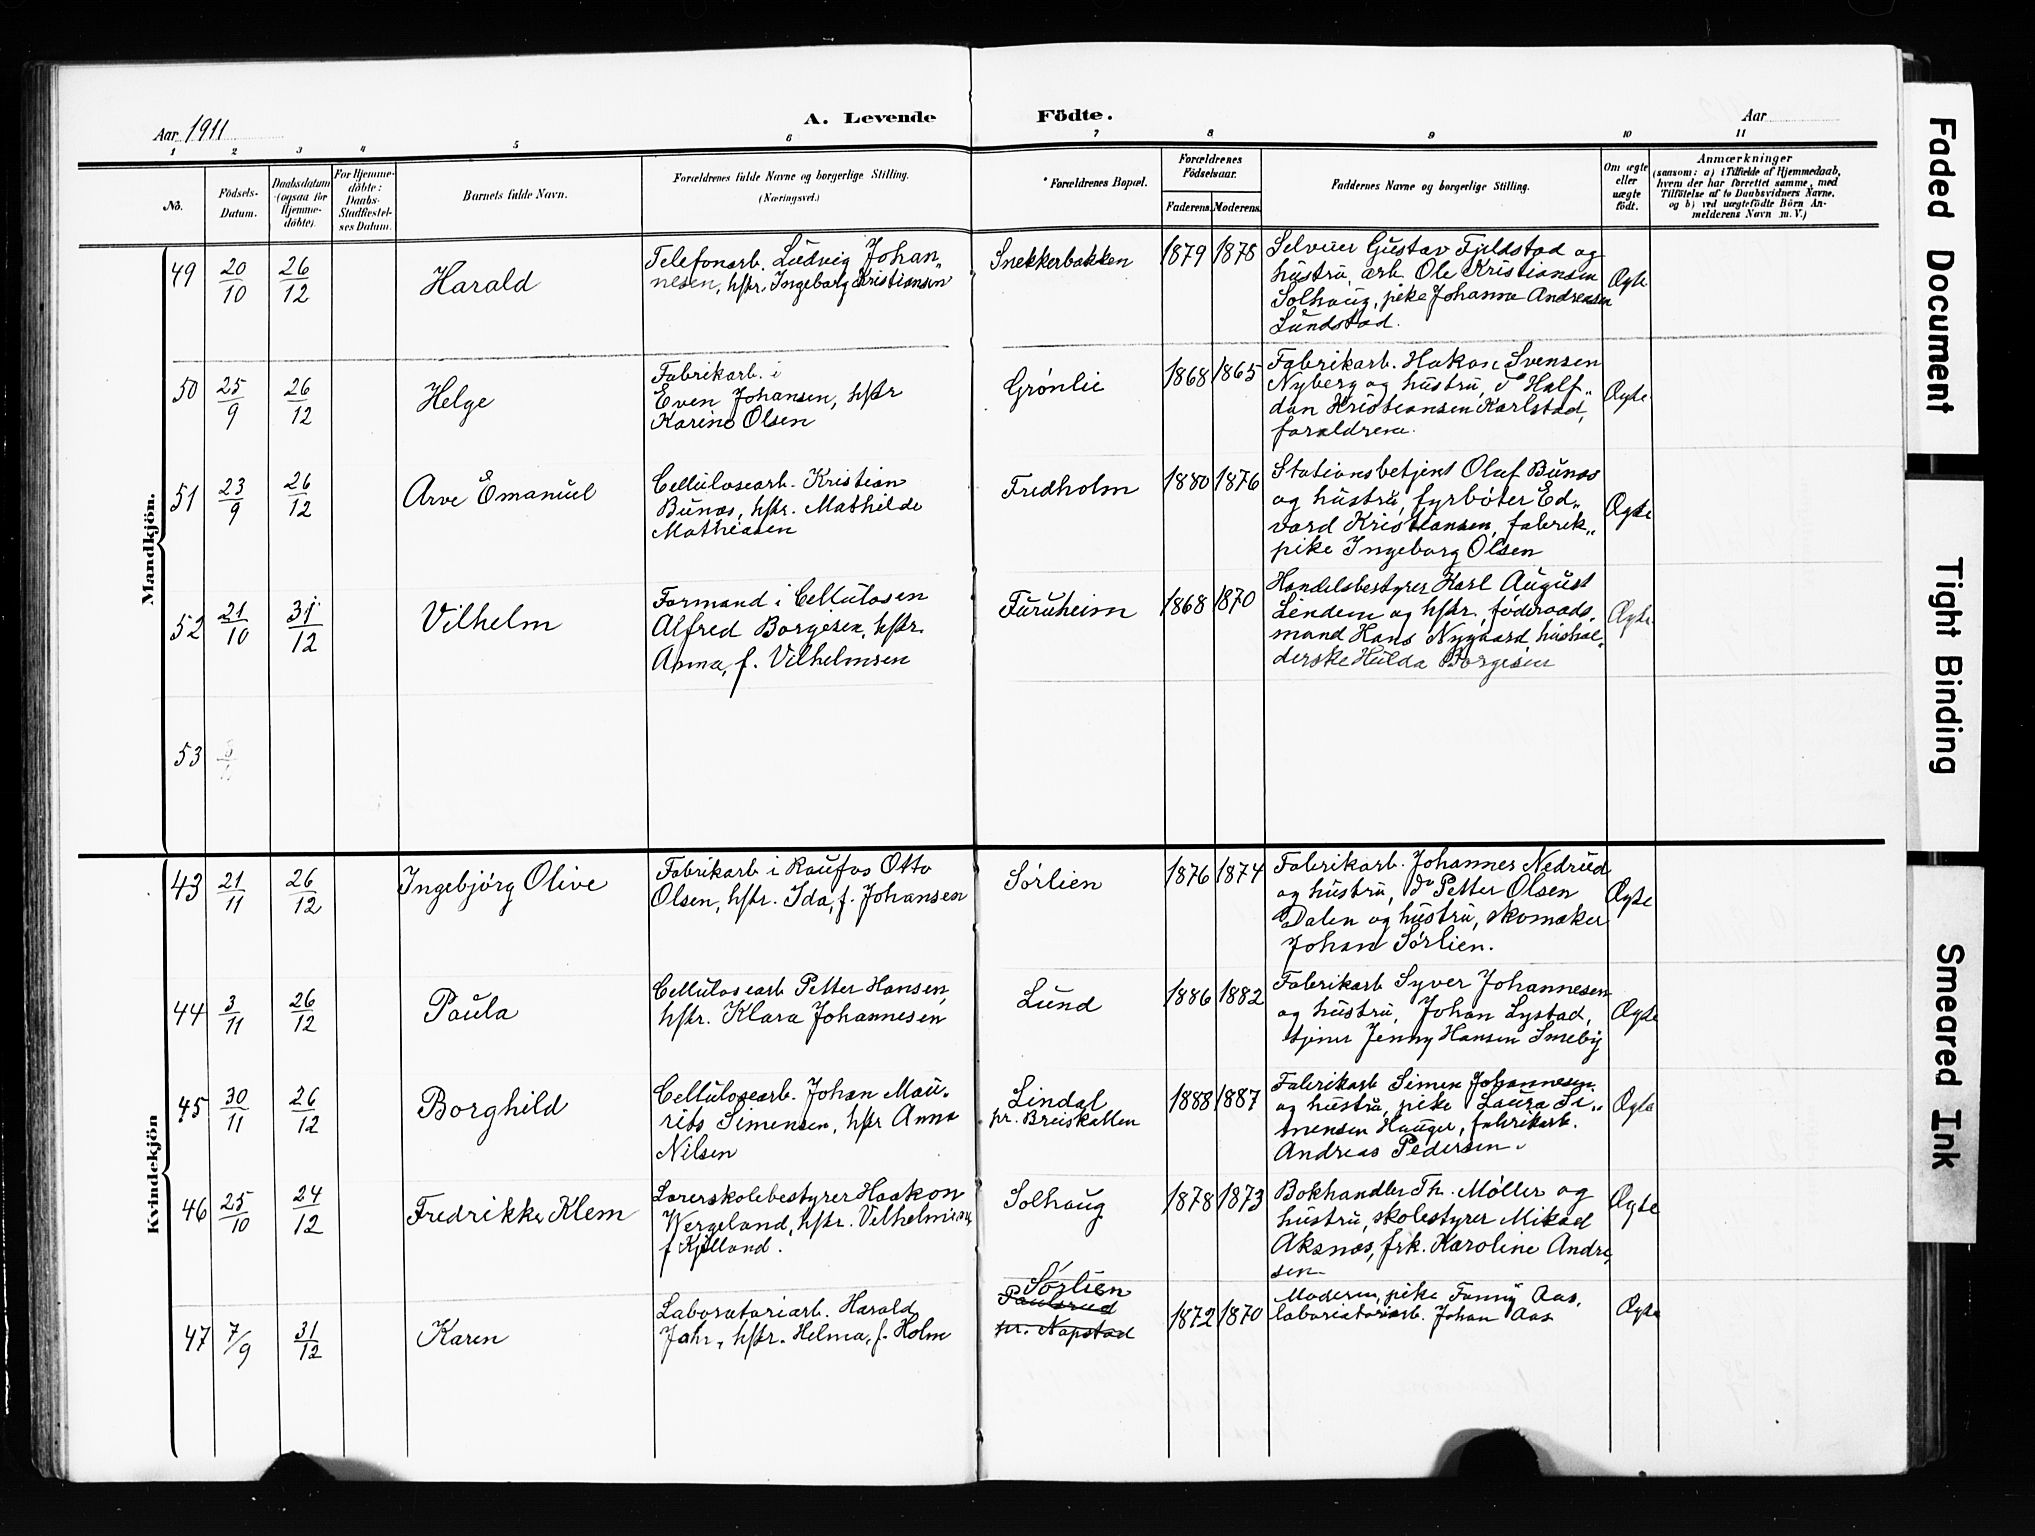 Aar 1911
A. Levende Födte.
Aar
1 2 3 4 5 6 7 8 9 10 11
No.
Födsels-
Datum.
Daabsdatum
(ogsaa for
Hjemme-
döbte).
For Hjemme-
döbte:
Daabs-
Stadfæstel-
ses Datum.
Barnets fulde Navn.
Forældrenes fulde Navne og borgerlige Stilling.
(Næringsvei.)
Forældrenes Bopæl.
Forældrenes
Födselsaar.
Faderens. Moderens.
Faddernes Navne og borgerlige Stilling.
Om ægte
eller
uægte
födt.
Anmærkninger
(saasom: a) i Tilfælde af Hjemmedaab,
hvem der har forrettet samme, med
Tilföielse af to Daabsvidners Navne,
og b) ved uægtefödte Börn An-
melderens Navn m. V.)
Mandkjön.
49 20/10 26/12 Harald
Telefonarb. Ludvig Johan-
nesen, hstr. Ingeborg Kristiansen
Snekkerbakken 1879 1878
Selveier Gustav Fjeldstad og
hustru, arb. Ole Kristiansen
Solhaug, pike Johanne Andresen
Lundstad.
Ægte
50 25/9 26/12 Helge
Fabrikarb. i
Even Johansen, hstr
Karine Olsen
Grønlie 1868 1865
Fabrikarb. Hakon Svensen
Nyberg og hustru, do Half-
dan Kristiansen Karlstad,
forældrene.
Ægte
51 23/9 26/12 Arve Emanuel
Cellulosearb. Kristian
Bunæs, hstr. Mathilde
Mathiesen
Fredholm 1880 1876
Stationsbetjent Olaf Bunæs
og hustru, fyrbøter Ed-
vard Kristiansen, fabrik-
pike Ingeborg Olsen
Ægte
52 21/10 31/12 Vilhelm
Formand i Cellulosen
Alfred Borgesen, hstr.
Anna, f. Vilhelmsen
Furuheim 1868 1870
Handelsbestyrer Karl August
Lindem og hstr., føderaads-
mand Hans Nygaard, hushol-
derske Hulda Borgesen
Ægte
53
Kvindekjön
43 21/11 26/12 Ingebjørg Olive
Fabrikarb i Raufos Otto
Olsen, hstr. Ida, f. Johansen
Sørlien 1876 1874
Fabrikarb. Johannes Nedrud
og hustru, do Petter Olsen
Dalen og hustru, skomaker
Johan Sørlien.
Ægte
44 3/11 26/12 Paula
Cellulosearb Petter Hansen,
hstr. Klara Johannesen
Lund 1886 1882
Fabrikarb Syver Johannesen
og hustru, Johan Lystad,
tjener Jenny Hansen Smeby
Ægte
45 30/11 26/12 Borghild
Cellulosearb. Johan Mau-
rits Simensen, hstr Anna
Nilsen
Lindal
pr. Breiskallen 1888 1887
Fabrikarb Simen Johannesen
og hustru, pike Laura Si-
mensen Hauger, fabrikarb.
Andreas Pedersen.
Ægte
46 25/10 24/12 Fredrikke Klem
Lærerskolebestyrer Haakon
Wergeland, hstr. Vilhelmine
f Kjelland.
Solhaug 1878 1873
Bokhandler Th. Møller og
hustru, skolestyrer Mikael
Aksnæs, frk. Karoline Andre-
sen
Ægte
47 7/9 31/12 Karen
Laboratoriarb. Harald
Jahr, hstr. Helma, f. Holm
Sørlien
Paulsrud
pr. Napstad 1872 1870
Moderen, pike Fanny Aas,
laboriatoriarb. Johan Aas
Ægte
Faded Document
Tight Binding
Smeared Ink